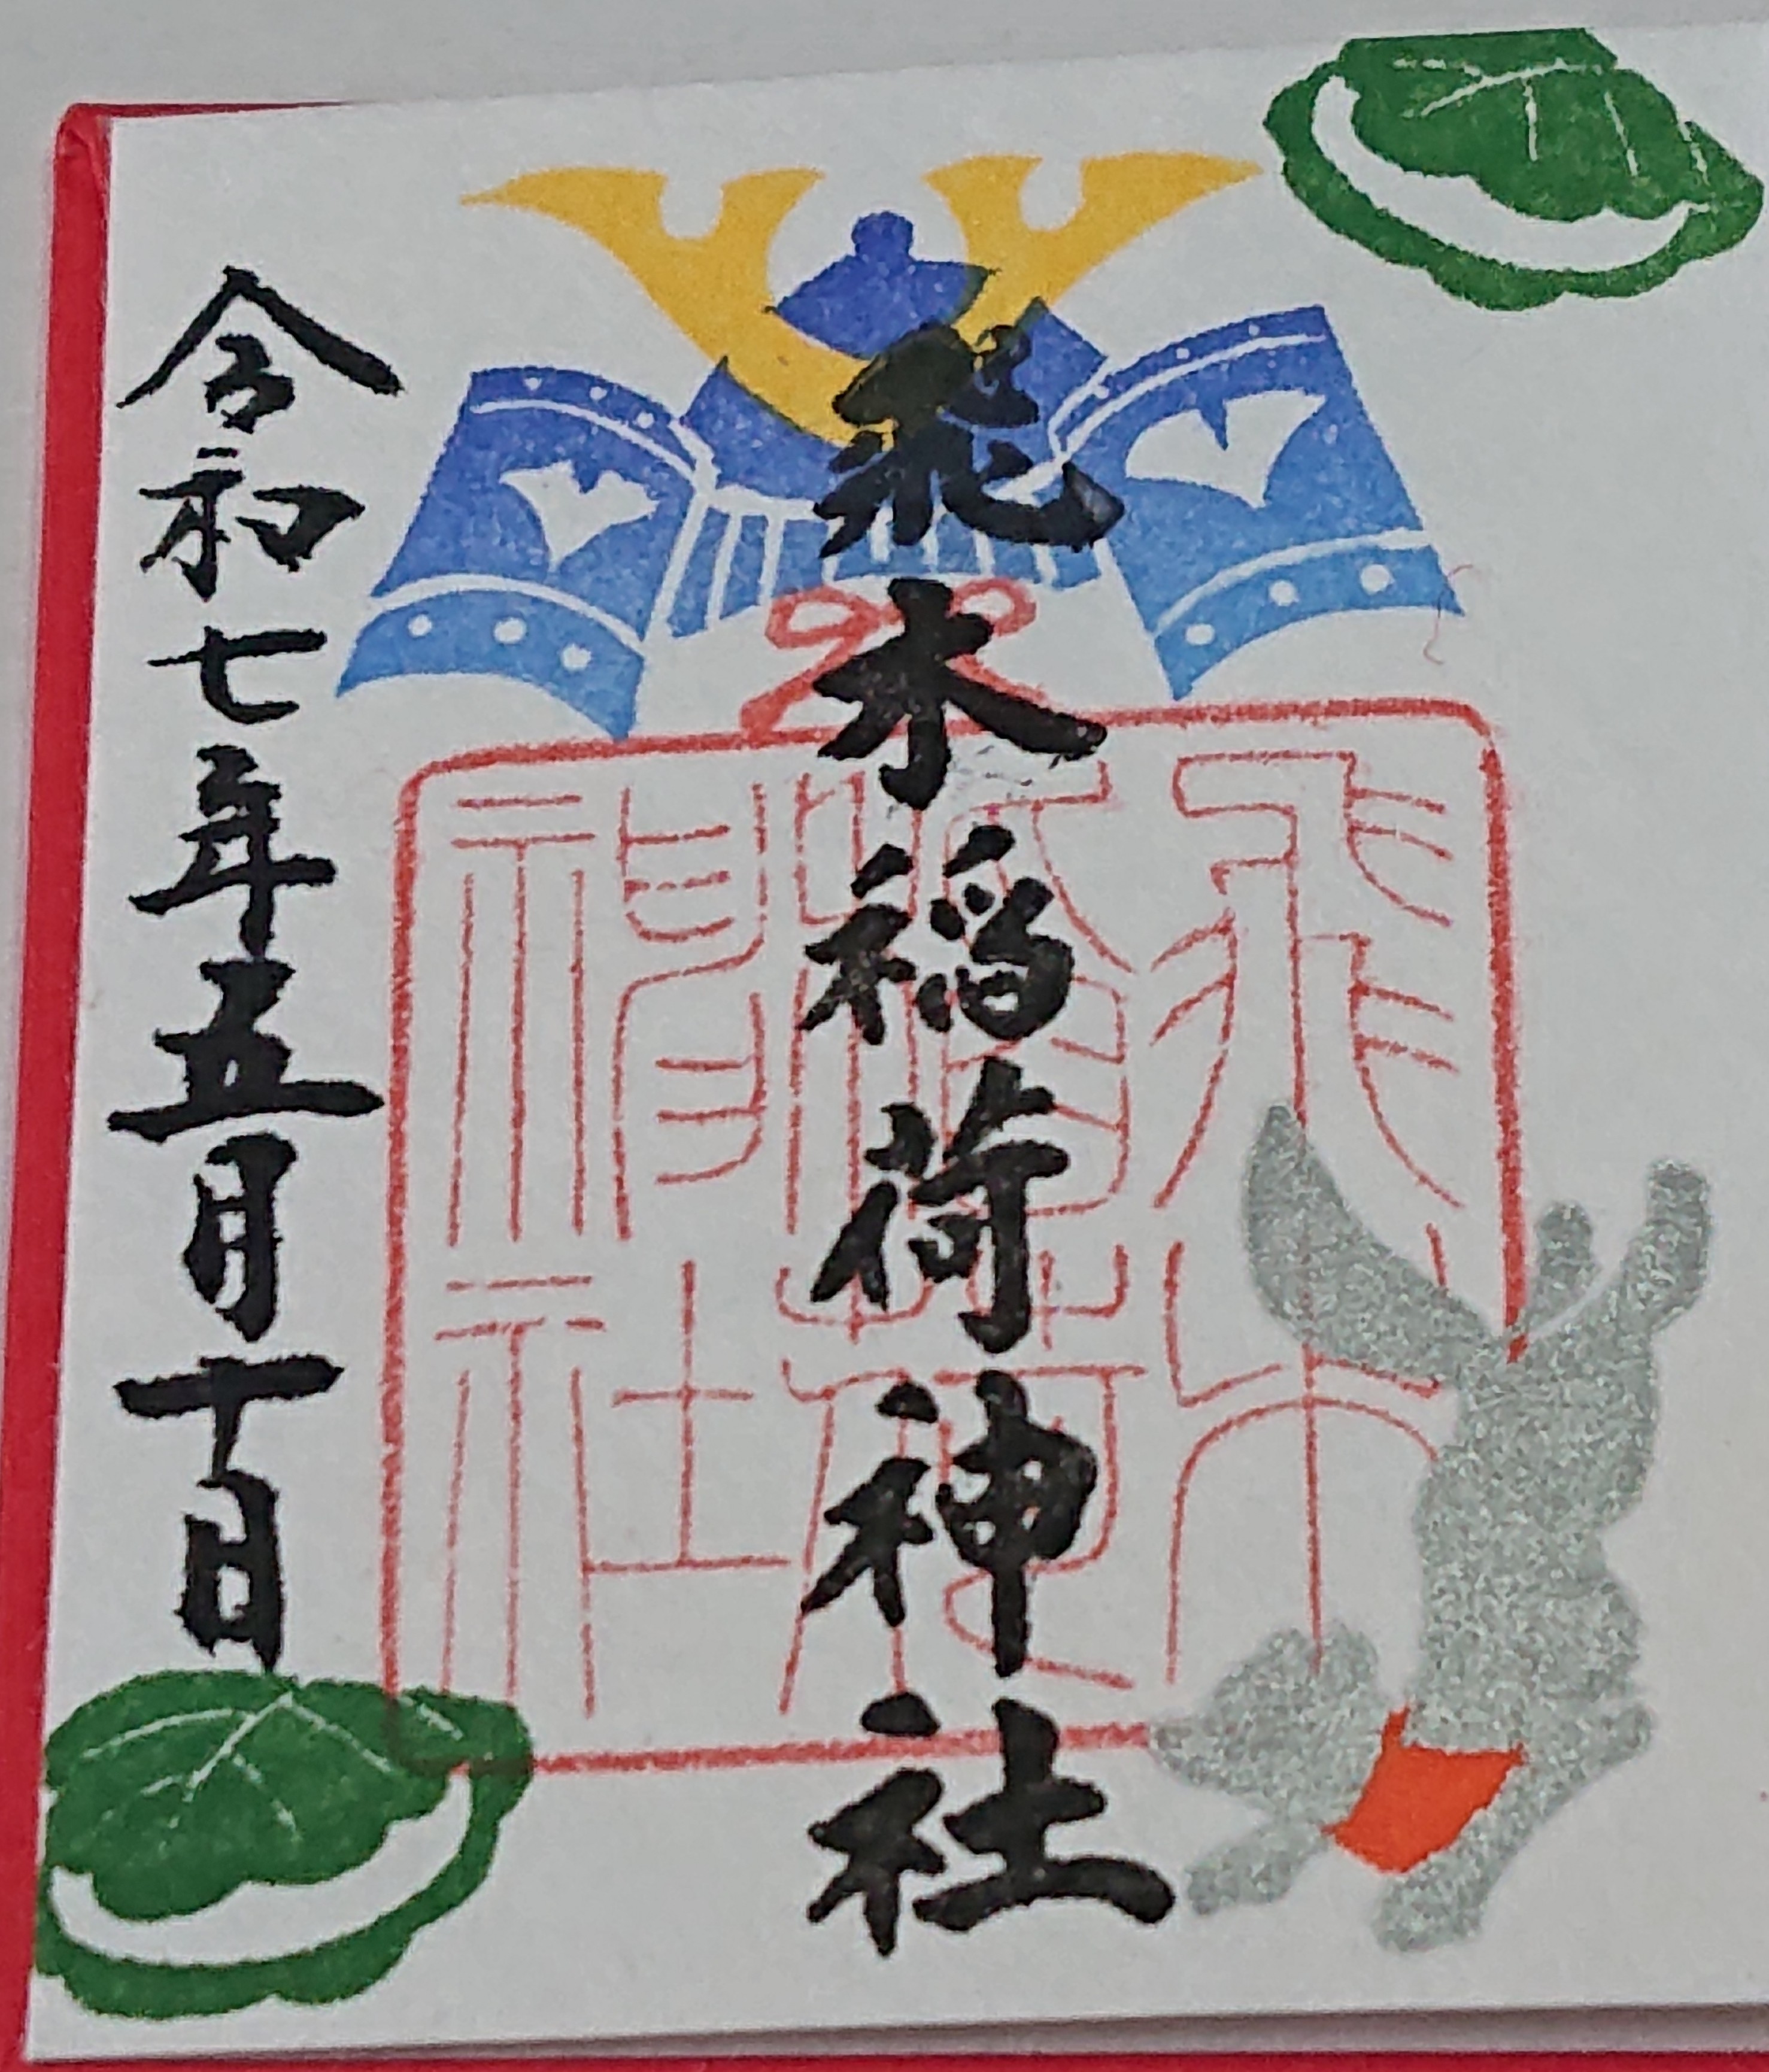 飛木稲荷神社
令和七年五月十日
飛木
稲荷
神社